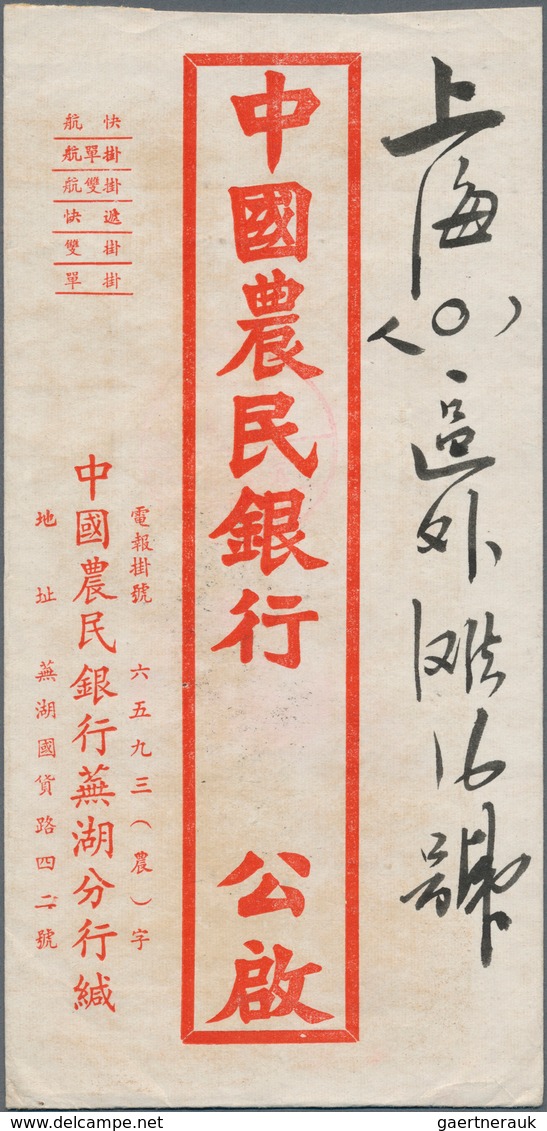 上海(0)區外灘16號
中國農民銀行 公啟
快航
掛單航
掛雙航
遞快
掛雙
掛單
電報掛號 六五九三(農)字
中國農民銀行蕪湖分行緘
地址 蕪湖國貨路四二號
gaertnerauk